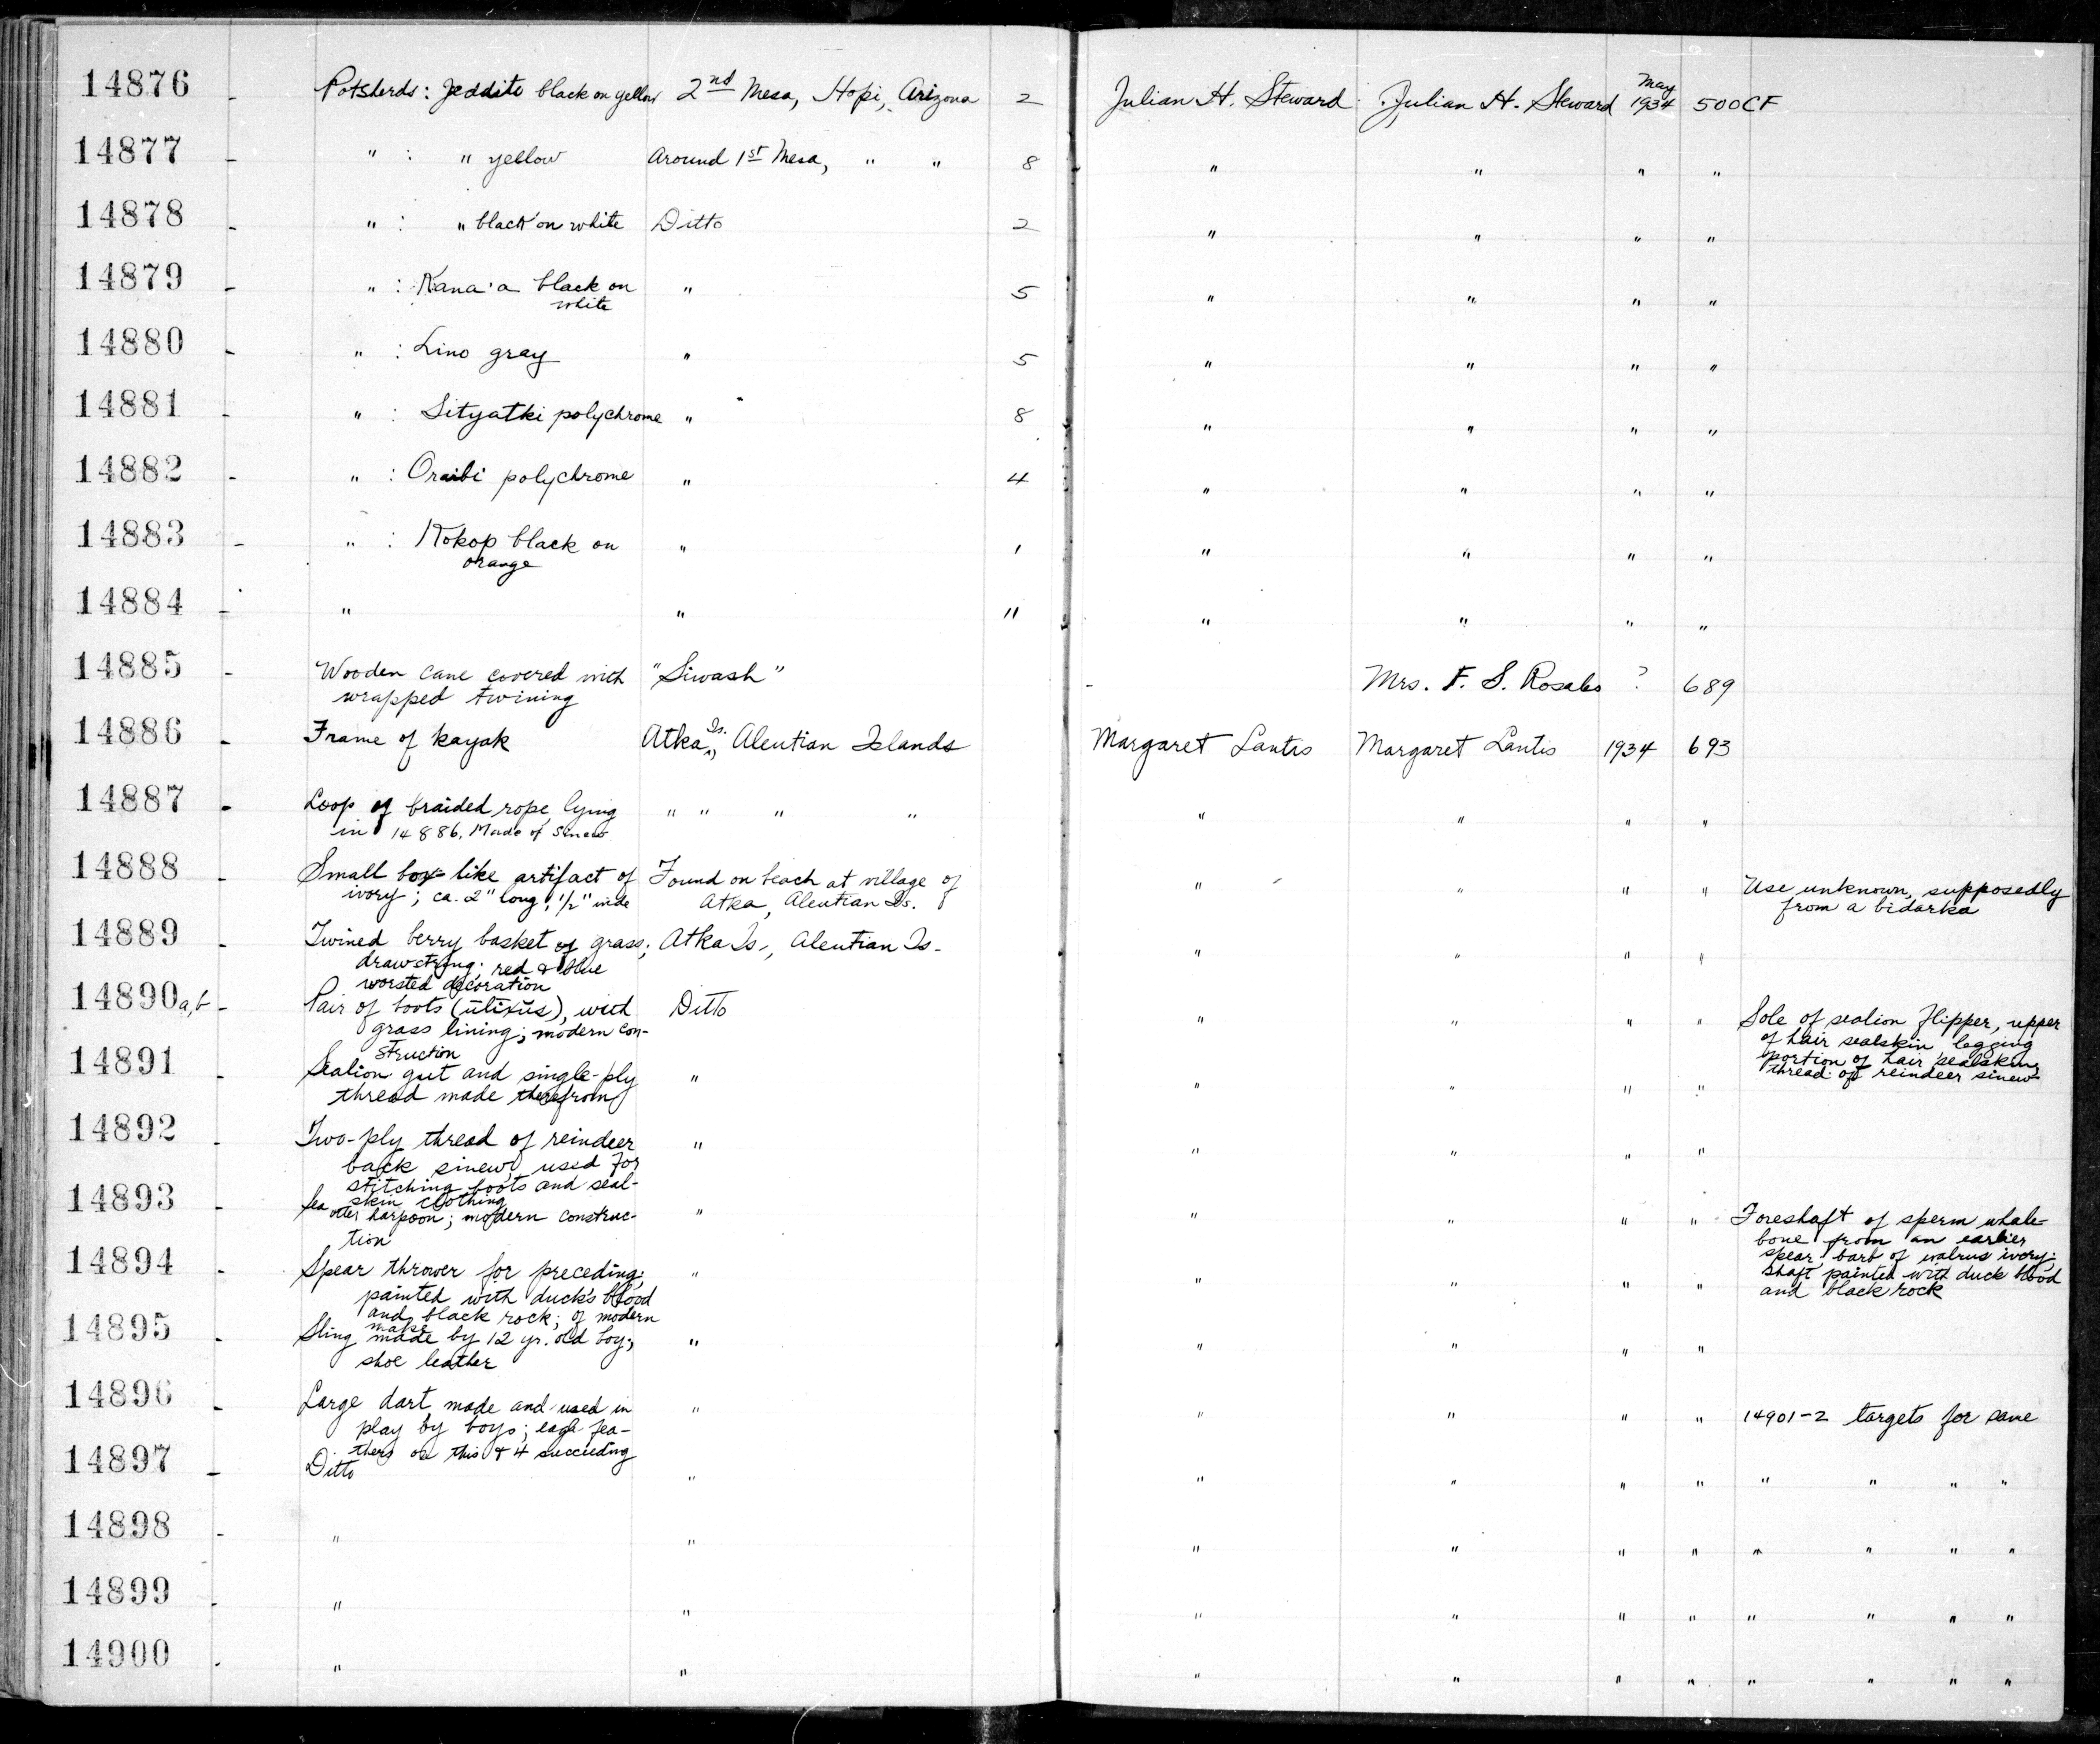 14876 - Potsherds: Jeddito black on yellow 2nd Mesa, Hopi, Arizona 2 Julian H. Steward Julian H. Steward May 1934 500CF
14877 - " : " yellow Around 1st Mesa, " " 8 " " " "
14878 - " : " black on white Ditto 2 " " " "
14879 - " : Kana'a black on " 5 " " " "
white
14880 - " : Lino gray " 5 " " " "
14881 - " : Sityatki polychrome " 8 " " " "
14882 - " : Oraibi polychrome " 4 " " " "
14883 - " : Kokop black on " 1 " " " "
orange
14884 - " " 11 " " " "
14885 - Wooden cane covered with "Siwash" - Mrs. F. S. Rosales ? 689
wrapped twining
14886 - Frame of kayak Atka Is., Aleutian Islands Margaret Lantis Margaret Lantis 1934 693
14887 - Loop of braided rope lying " " " " " " " "
in 14886. Made of sinew
14888 - Small box-like artifact of Found on beach at village of " " " " Use unknown, supposedly
ivory; ca. 2" long, 1/2" wide Atka, Aleutian Is. from a bidarka
14889 - Twined berry basket of grass; Atka Is., Aleutian Is. " " " "
drawstring; red & blue
worsted decoration
14890a,b - Pair of boots (ulixus), with Ditto " " " " Sole of sealion flipper, upper
grass lining; modern con- of hair sealskin legging
struction portion of hair sealskin,
thread of reindeer sinew
14891 - Sealion gut and single-ply " " " " "
thread made therefrom
14892 - Two-ply thread of reindeer " " " " "
back sinew, used for
stitching boots and seal-
skin clothing
14893 - Sea otter harpoon; modern construc- " " " " " Foreshaft of sperm whale-
tion bone from an earlier
spear, barb of walrus ivory;
shaft painted with duck blood
and black rock
14894 - Spear thrower for preceding; " " " " "
painted with duck's blood
and black rock; of modern
make
14895 - Sling made by 12 yr. old boy; " " " " "
shoe leather
14896 - Large dart made and used in " " " " " 14901-2 targets for same
play by boys; eagle fea-
thers on this & 4 succeeding
14897 - Ditto " " " " " " " " "
14898 - " " " " " " " " " "
14899 - " " " " " " " " " "
14900 - " " " " " " " " " "